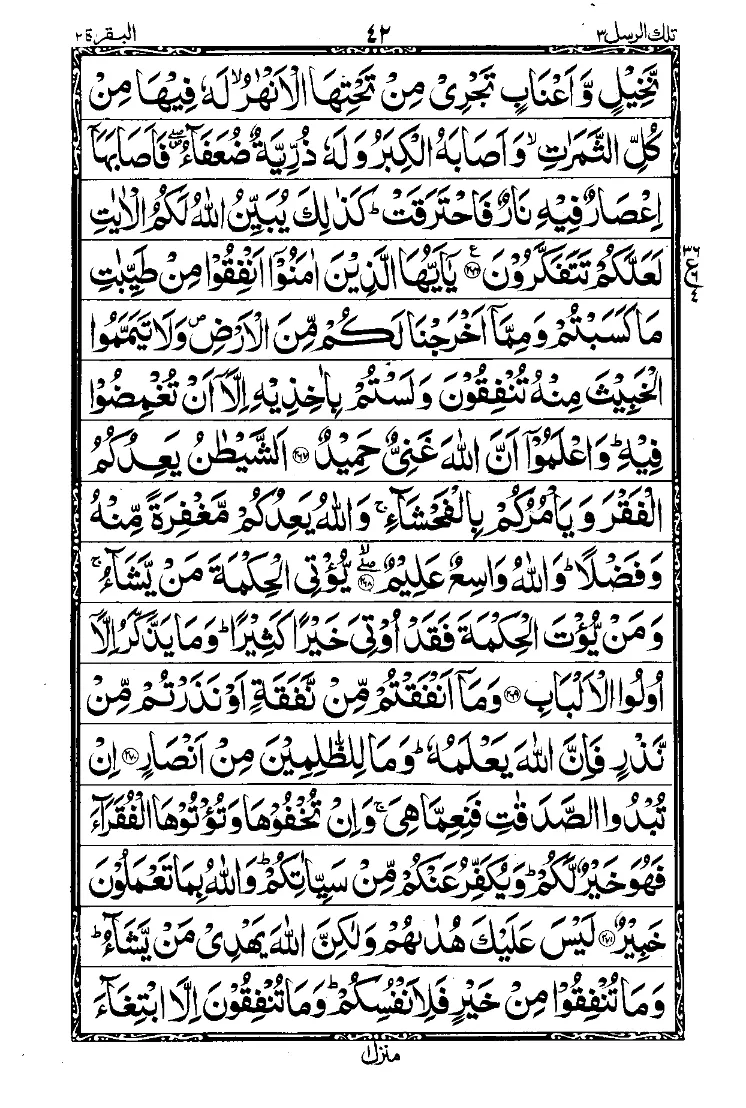 تلك الرسل ٣ ٤٢ البقرة ٢
نَّخِيْلٍ وَّاَعْنَابٍ تَجْرِيْ مِنْ تَحْتِهَا الْاَنْهٰرُ ۙ لَهٗ فِيْهَا مِنْ
كُلِّ الثَّمَرٰتِ ۙ وَاَصَابَهُ الْكِبَرُ وَلَهٗ ذُرِّيَّةٌ ضُعَفَآءُ ۖ فَاَصَابَهَاۤ
اِعْصَارٌ فِيْهِ نَارٌ فَاحْتَرَقَتْ ؕ كَذٰلِكَ يُبَيِّنُ اللّٰهُ لَكُمُ الْاٰيٰتِ
لَعَلَّكُمْ تَتَفَكَّرُوْنَ ﴿۲۶۶﴾ يٰۤاَيُّهَا الَّذِيْنَ اٰمَنُوْۤا اَنْفِقُوْا مِنْ طَيِّبٰتِ
٣٦
ع
٦
٤
مَا كَسَبْتُمْ وَمِمَّاۤ اَخْرَجْنَا لَكُمْ مِّنَ الْاَرْضِ ۪ وَلَا تَيَمَّمُوا
الْخَبِيْثَ مِنْهُ تُنْفِقُوْنَ وَلَسْتُمْ بِاٰخِذِيْهِ اِلَّاۤ اَنْ تُغْمِضُوْا
فِيْهِ ؕ وَاعْلَمُوْۤا اَنَّ اللّٰهَ غَنِيٌّ حَمِيْدٌ ﴿۲۶۷﴾ اَلشَّيْطٰنُ يَعِدُكُمُ
الْفَقْرَ وَيَاْمُرُكُمْ بِالْفَحْشَآءِ ۚ وَاللّٰهُ يَعِدُكُمْ مَّغْفِرَةً مِّنْهُ
وَفَضْلًا ؕ وَاللّٰهُ وَاسِعٌ عَلِيْمٌ ﴿۲۶۸﴾ ۖۙ يُّؤْتِي الْحِكْمَةَ مَنْ يَّشَآءُ ۚ
وَمَنْ يُّؤْتَ الْحِكْمَةَ فَقَدْ اُوْتِيَ خَيْرًا كَثِيْرًا ؕ وَمَا يَذَّكَّرُ اِلَّاۤ
اُولُوا الْاَلْبَابِ ﴿۲۶۹﴾ وَمَاۤ اَنْفَقْتُمْ مِّنْ نَّفَقَةٍ اَوْ نَذَرْتُمْ مِّنْ
نَّذْرٍ فَاِنَّ اللّٰهَ يَعْلَمُهٗ ؕ وَمَا لِلظّٰلِمِيْنَ مِنْ اَنْصَارٍ ﴿۲۷۰﴾ اِنْ
تُبْدُوا الصَّدَقٰتِ فَنِعِمَّا هِيَ ۚ وَاِنْ تُخْفُوْهَا وَتُؤْتُوْهَا الْفُقَرَآءَ
فَهُوَ خَيْرٌ لَّكُمْ ؕ وَيُكَفِّرُ عَنْكُمْ مِّنْ سَيِّاٰتِكُمْ ؕ وَاللّٰهُ بِمَا تَعْمَلُوْنَ
خَبِيْرٌ ﴿۲۷۱﴾ لَيْسَ عَلَيْكَ هُدٰىهُمْ وَلٰكِنَّ اللّٰهَ يَهْدِيْ مَنْ يَّشَآءُ ؕ
وَمَا تُنْفِقُوْا مِنْ خَيْرٍ فَلِاَنْفُسِكُمْ ؕ وَمَا تُنْفِقُوْنَ اِلَّا ابْتِغَآءَ
منزل ١